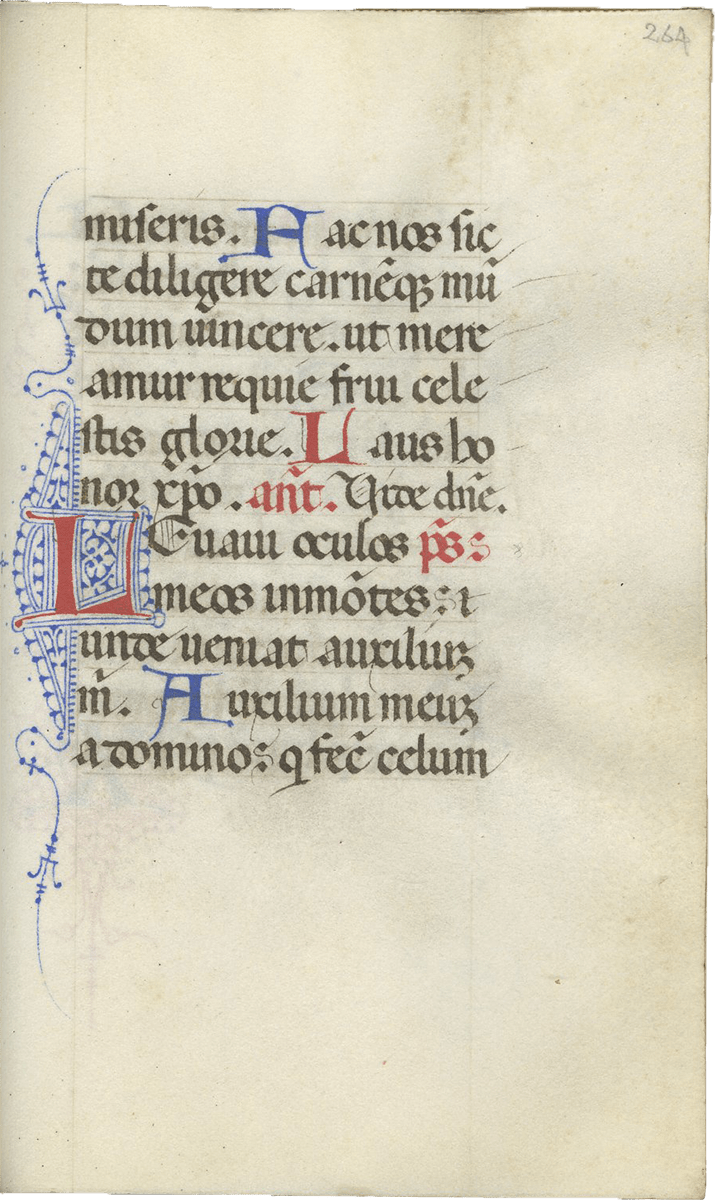 264
miseris. Fac nos sic
te diligere carnēqꝫ mū
dum uincere. ut mere
amur requie frui cele
stis glorie. Laus ho
nor xp̄o. an̄t. Vide dn̄e.
LEuaui oculos p̄s:
meos in mōtes: i
unde ueniat auxiliuꝫ
m̄. Auxilium meuꝫ
a domino: q fec̄ celum